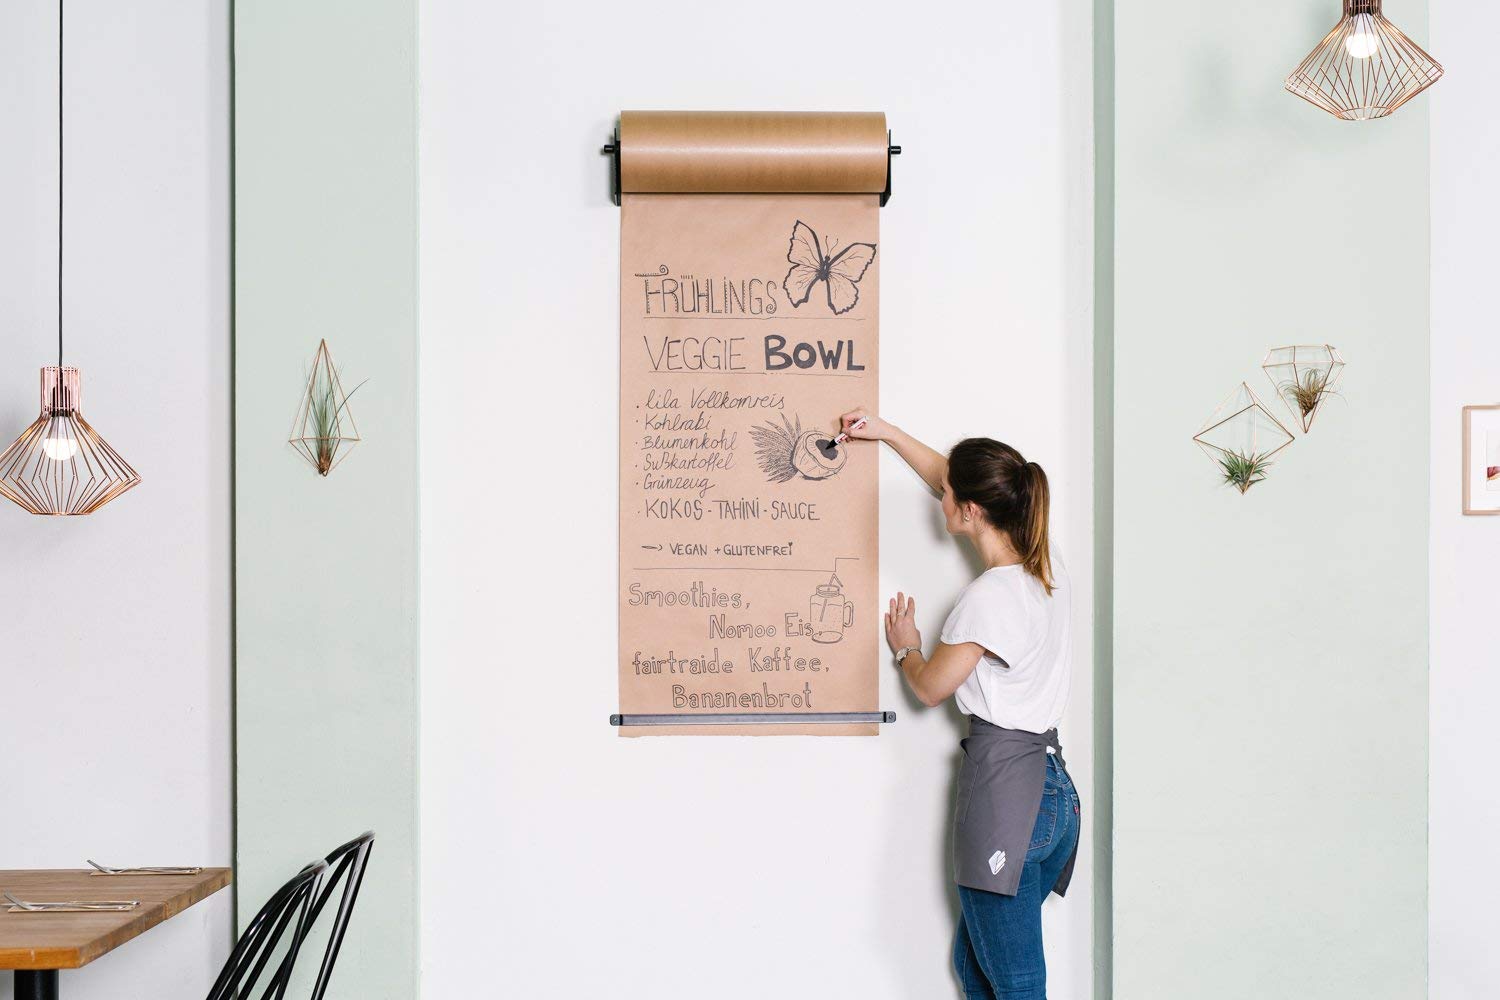 FRÜHLINGS
VEGGIE BOWL
· lila Vollkornreis
· Kohlrabi
· Blumenkohl
· Süßkartoffel
· Grünzeug
· KOKOS - TAHINI - SAUCE
→ VEGAN + GLUTENFREI
Smoothies,
Nomoo Eis,
fairtraide Kaffee,
Bananenbrot